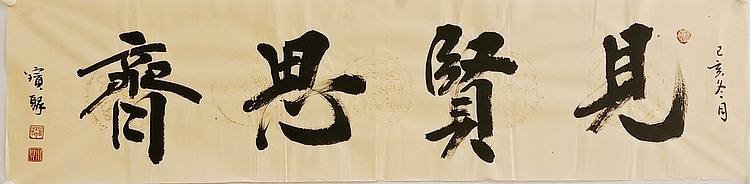 己亥冬月
見賢思齊